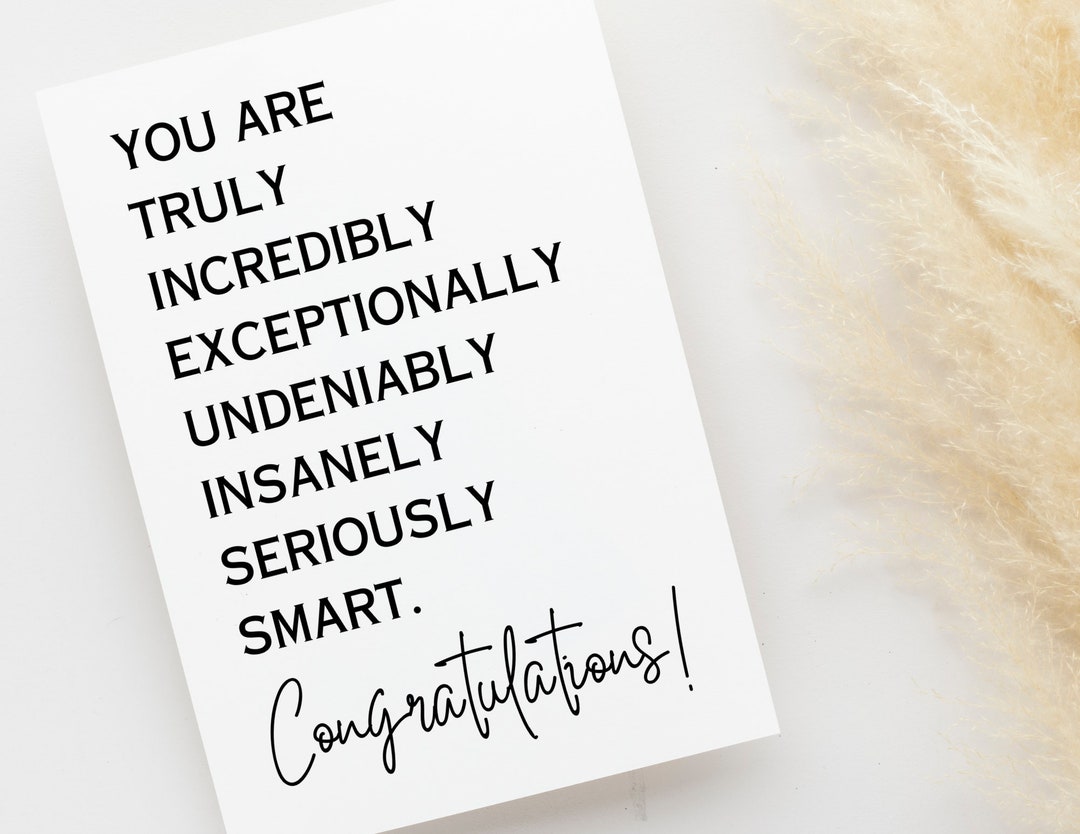 YOU ARE
TRULY
INCREDIBLY
EXCEPTIONALLY
UNDENIABLY
INSANELY
SERIOUSLY
SMART.
Congratulations!